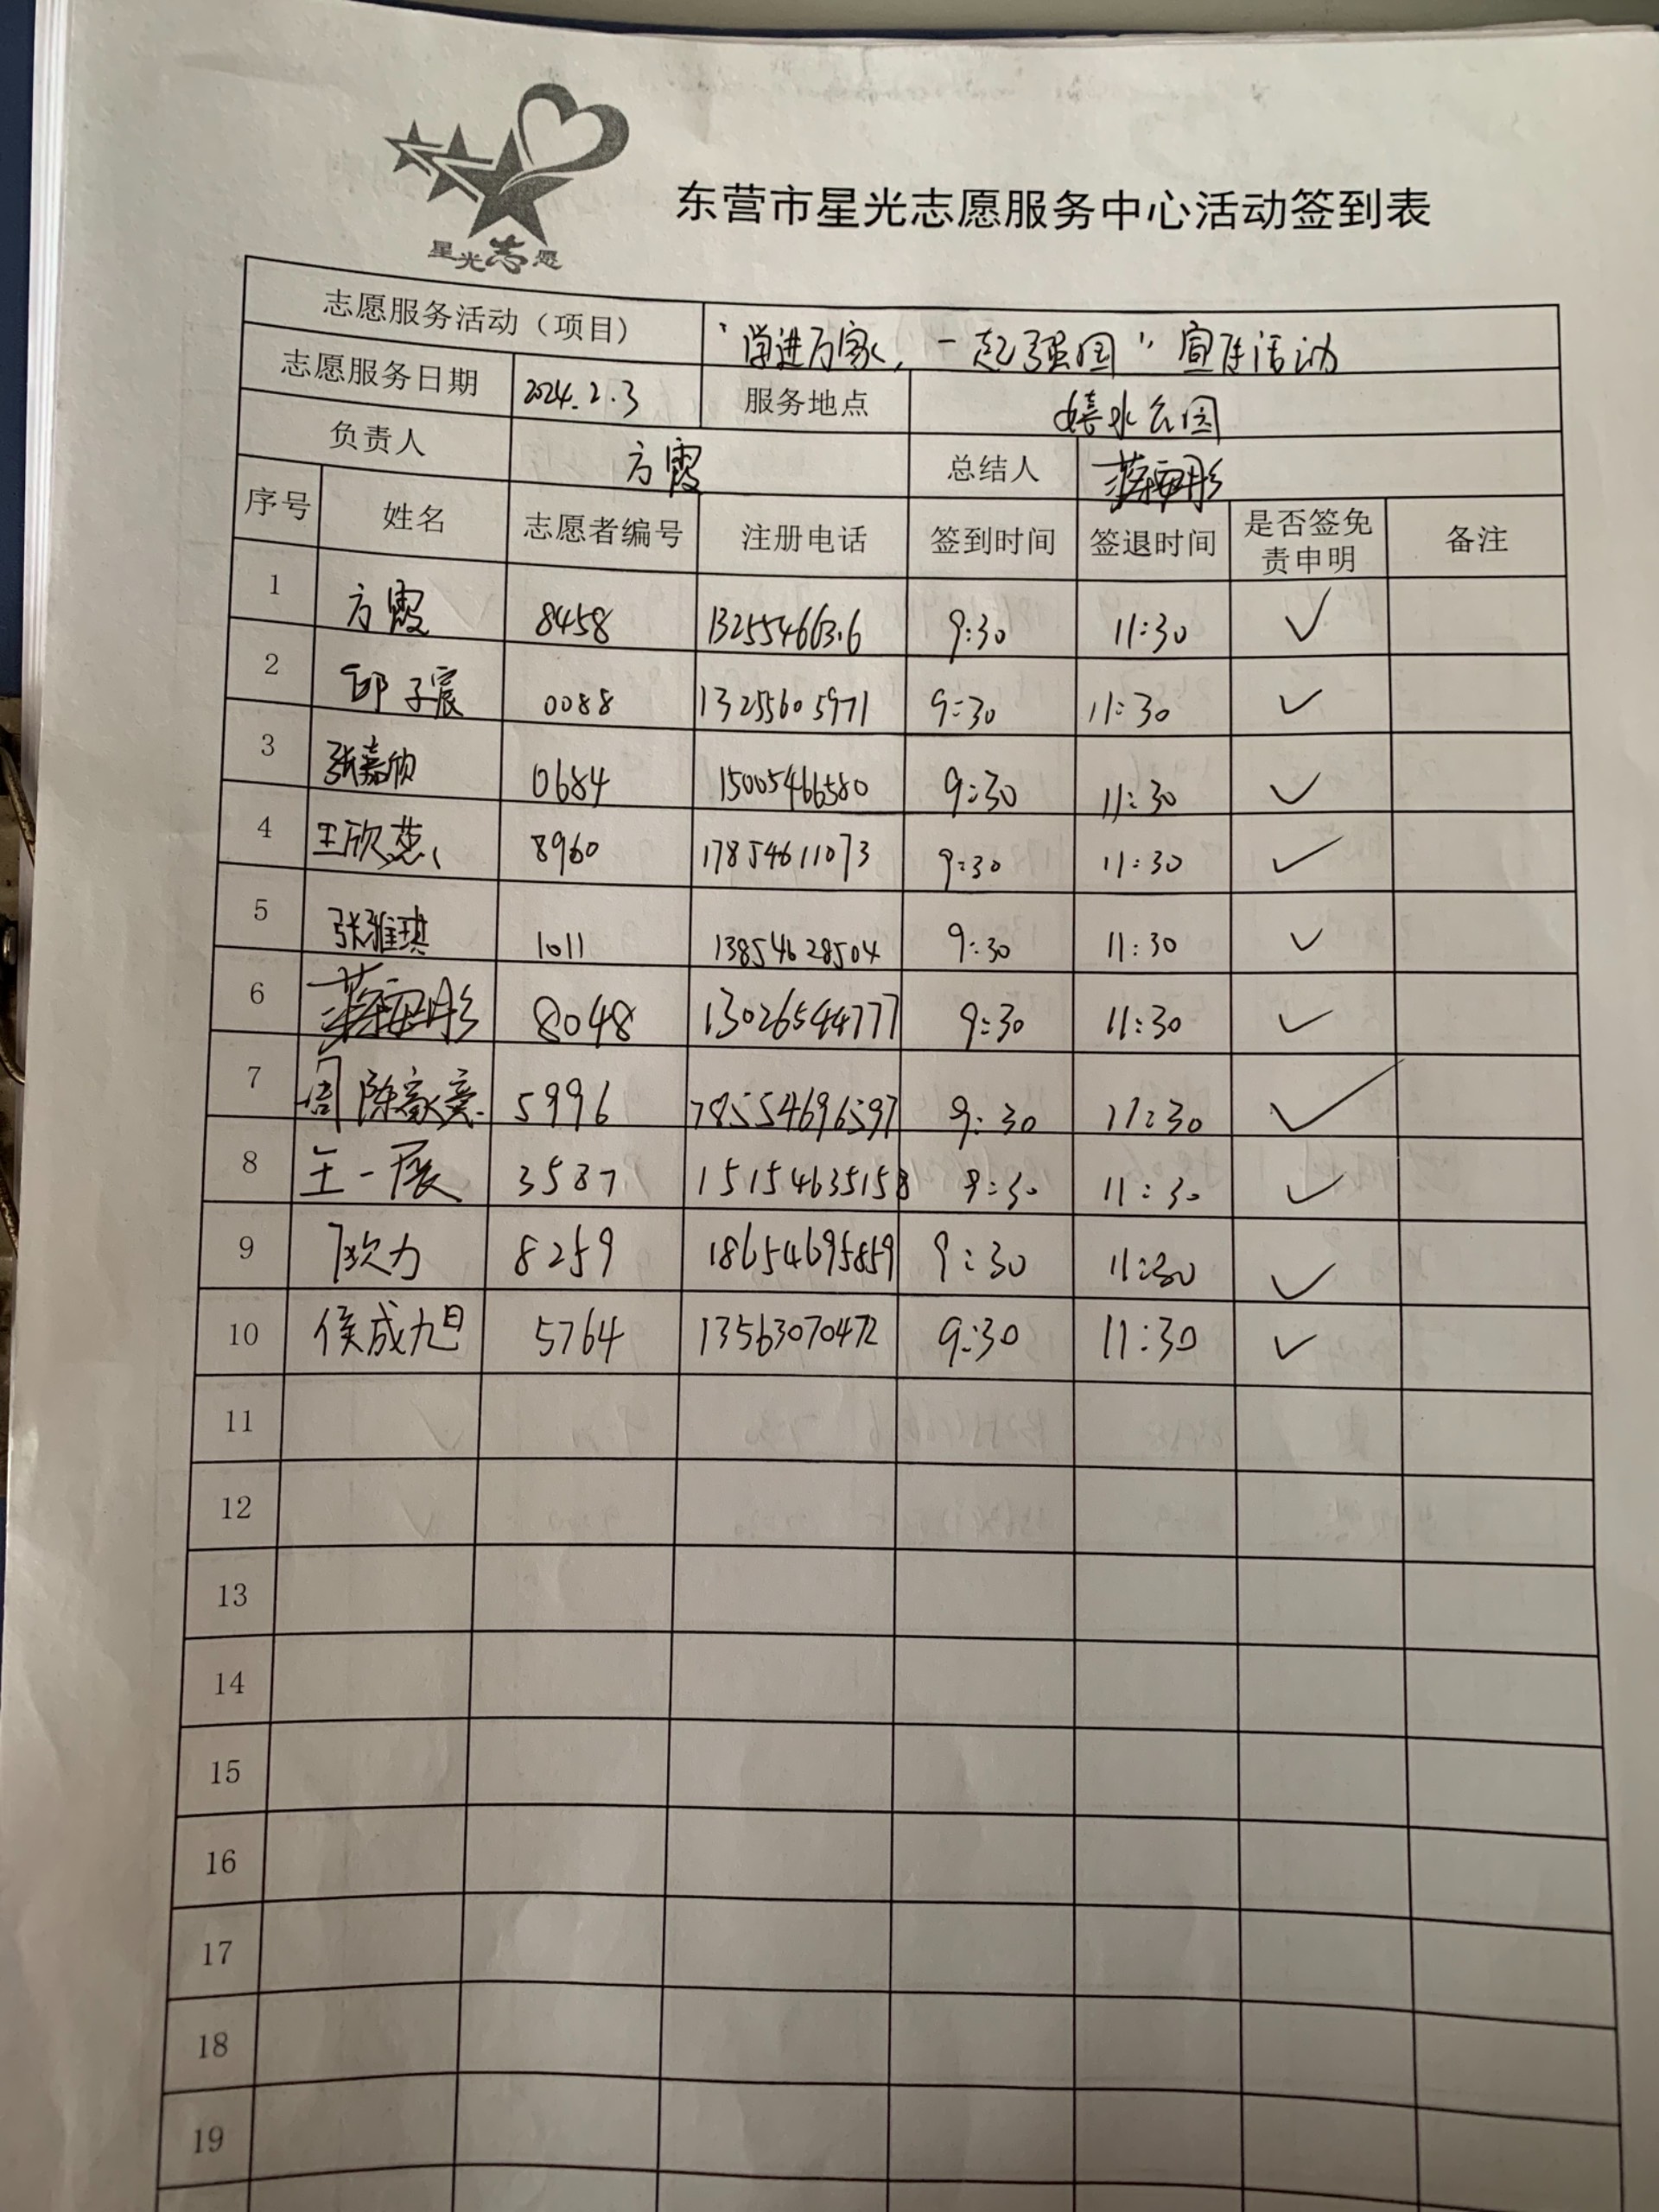 星光志愿
东营市星光志愿服务中心活动签到表
志愿服务活动（项目） “学进万家，一起强国”宣传活动
志愿服务日期 2024.2.3 服务地点 嬉水公园
负责人 方霞 总结人
序号 姓名 志愿者编号 注册电话 签到时间 签退时间 是否签免责申明 备注
1 方霞 8458 9:30 11:30 ✓
2 邱子宸 0088 13255605971 9:30 11:30 ✓
3 张嘉欣 0684 15005466580 9:30 11:30 ✓
4 王欣燕 8960 17854611073 9:30 11:30 ✓
5 张雅琪 1011 13854628504 9:30 11:30 ✓
6 8048 13026544777 9:30 11:30 ✓
7 周陈 5996 9:30 11:30 ✓
8 王一展 3587 15154635158 9:30 11:30 ✓
9 8259 18654695859 9:30 11:30 ✓
10 侯成旭 5764 13563070472 9:30 11:30 ✓
11
12
13
14
15
16
17
18
19